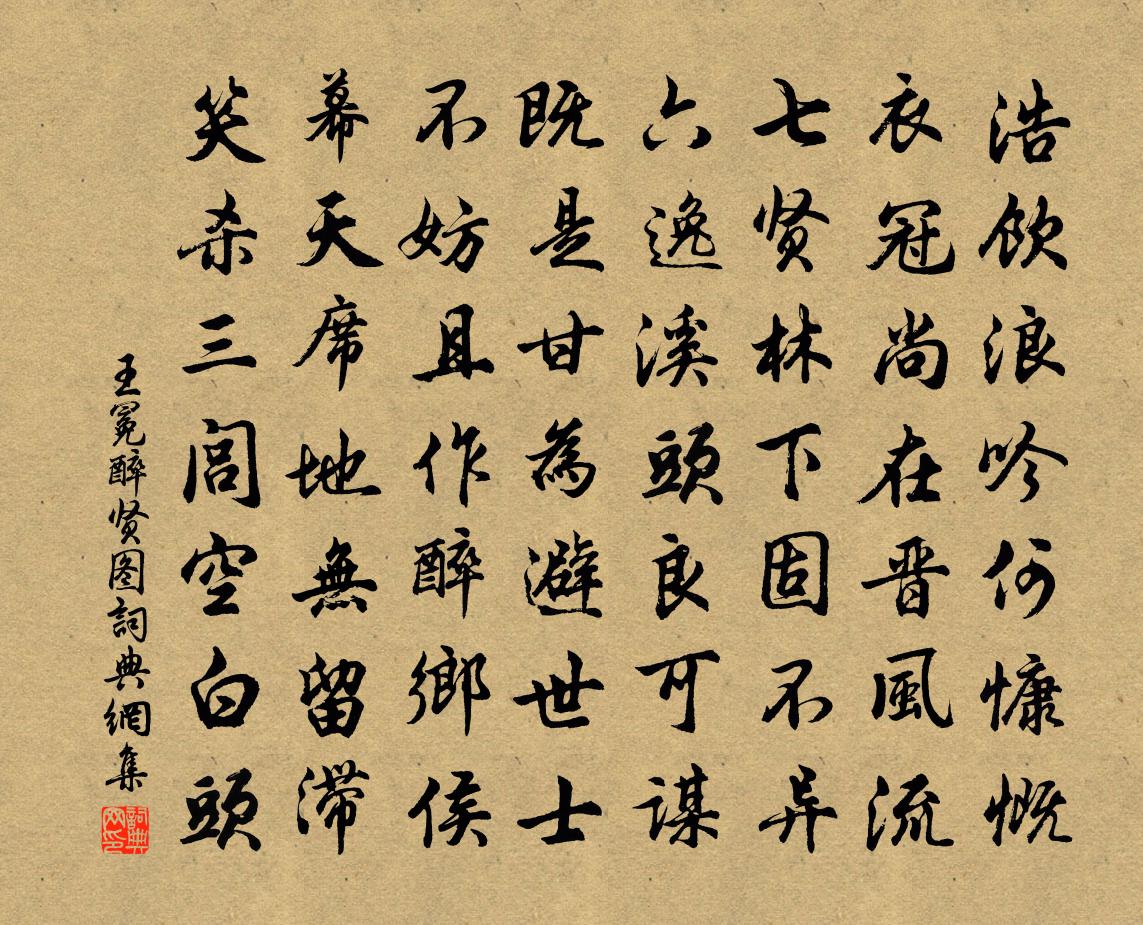 浩飲浪吟何慷慨
衣冠尚在晋風流
七贤林下固不异
六逸溪頭良可謀
既是甘為避世士
不妨且作醉鄉侯
幕天席地無留滯
笑杀三閭空白頭
王冕醉贤图詞典網集
詞典網印